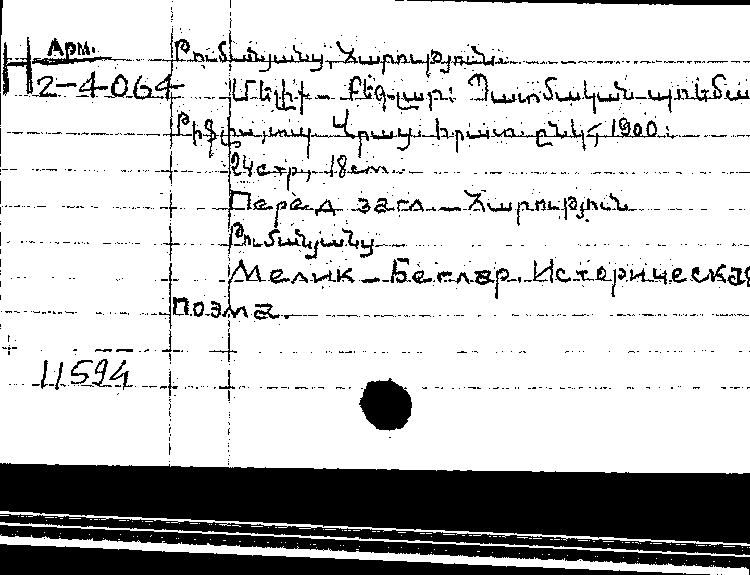 Арм.
Н 2-4-064
Թումանյանց, Հարություն.
Մելիք – Բեգլար: Պատմական պոեմա
Թիֆլիս, տպ. Վրաց. հրատ. ընկ., 1900.
24стр., 18см.
Перед загл. – Հարություն
Թումանյանց
Мелик – Беглар. Историческая
поэма.
11594